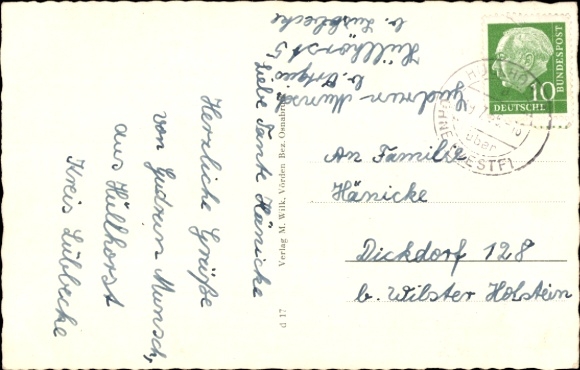 Liebe Tante Hänicke
Herzliche Grüße
von Gudrun Munsch,
aus Hüllhorst
Kreis Lübbecke
Gudrun Munsch
Hüllhorst 5
b. Lübbecke
Verlag M. Wilk, Vörden Bez. Osnabrück
d 17
10
DEUTSCHE
BUNDESPOST
über
WESTF
An Familie
Hänicke
Dickdorf 128
b. Wilster Holstein